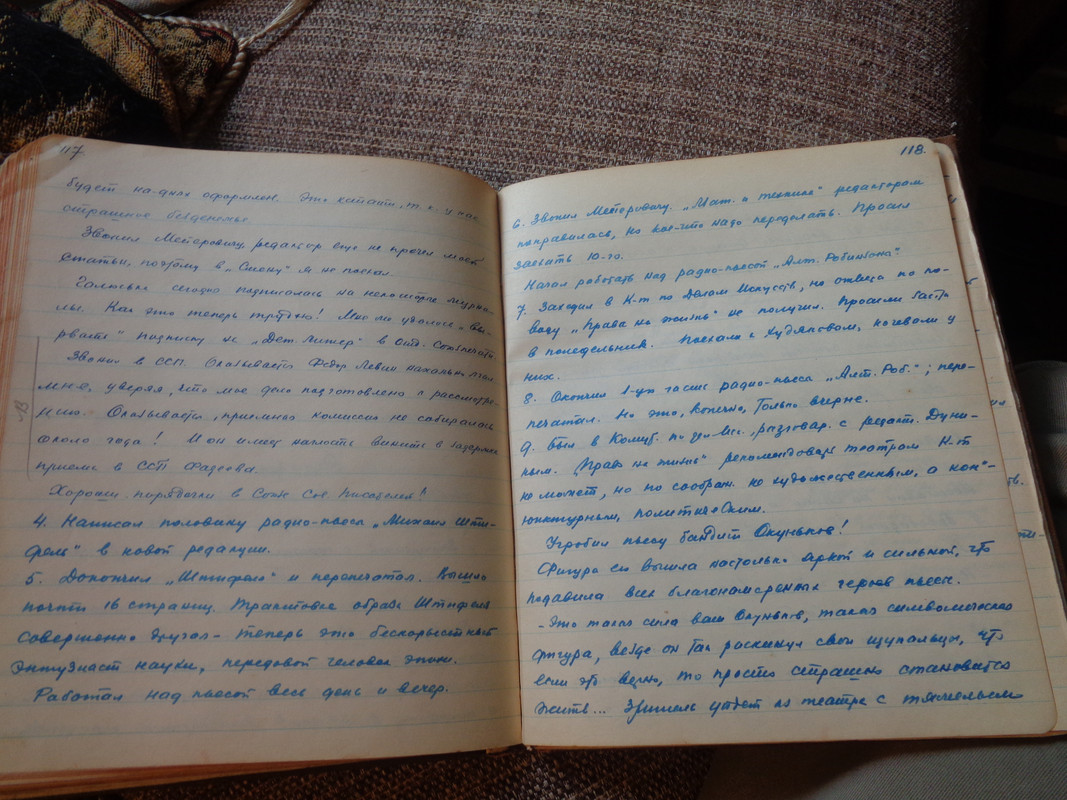 117.
будет на-днях оформлен. Это кстати, т. к. у нас
страшное безденежье.
Звонил Мееровичу, редактор еще не прочел моей
статьи, поэтому в „Смену" я не поехал.
Галюська сегодня подписалась на некоторые журна-
лы. Как это теперь трудно! Мне ли удалось „вы-
рвать" подписку на „Дет. Литер" в отд. Союзпечати
Звонил в ССП. Оказывается Федор Левин нахально лгал
мне, уверяя, что мое дело подготовлено к рассмотре-
нию. Оказывается, приемная комиссия не собиралась
около года! Мои имеют наглость винить в задержке
приема в ССП Фадеева.
Хороши порядочки в Союзе Сов. Писателей!
4. Написал половину радио-пьесы „Михаил Шти-
фель" в новой редакции.
5. Докончил „Штифеля" и перепечатал. Вышло
почти 16 страниц. Трактовка образа Штифеля
совершенно другая – теперь это бескорыстный
энтузиаст науки, передовой человек эпохи.
Работал над пьесой весь день и вечер.
118.
6. Звонил Мееровичу. „Мат. и техника" редакторам
понравилась, но кое-что надо переделать. Просил
заехать 10-го.
Начал работать над радио-пьесой „Алт. Робинзоны".
7. Заходил в К-т по Делам Искусств, но ответа по по-
воду „Права на жизнь" не получил. Просили быть
в понедельник. Поехали к Худяковым, ночевали у
них.
8. Окончил 1-ую часть радио-пьесы „Алт. Роб."; пере-
печатал. Но это, конечно, только вчерне.
9. Был в Комит. по дел. Иск., разговар. с редакт. Дуни-
ным. „Право на жизнь" рекомендовать театрам К-т
не может, но по соображ. не художественным, а кон"-
юнктурным, политическим.
Угробил пьесу бандит Окуньков!
Фигура его вышла настолько яркой и сильной, что
подавила всех благонамеренных героев пьесы.
– Это такая сила ваш Окуньков, такая символическая
фигура, везде он так раскинул свои щупальцы, что
если это верно, то просто страшно становится
жить... Зритель уйдет из театра с тяжелым